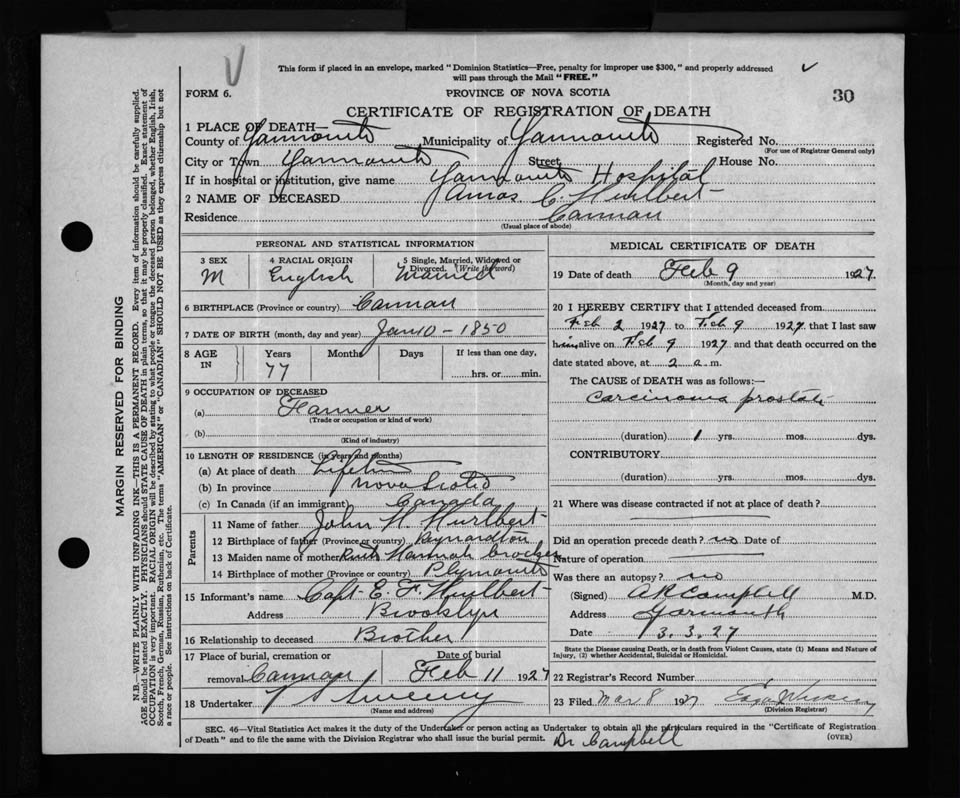 This form if placed in an envelope, marked "Dominion Statistics—Free, penalty for improper use $300," and properly addressed
will pass through the Mail "FREE."
FORM 6.
PROVINCE OF NOVA SCOTIA
30
CERTIFICATE OF REGISTRATION OF DEATH
1 PLACE OF DEATH—
County of Yarmouth Municipality of Yarmouth Registered No.
(For use of Registrar General only)
City or Town Yarmouth Street House No.
If in hospital or institution, give name Yarmouth Hospital
2 NAME OF DECEASED Amos C. Hurlbert
Residence Cannan
(Usual place of abode)
PERSONAL AND STATISTICAL INFORMATION
3 SEX
M
4 RACIAL ORIGIN
English
5 Single, Married, Widowed or
Divorced. (Write the word)
Married
6 BIRTHPLACE (Province or country) Cannan
7 DATE OF BIRTH (month, day and year) Jan 10 - 1850
8 AGE
IN
Years
77
Months
Days
If less than one day,
hrs. or min.
9 OCCUPATION OF DECEASED
(a) Farmer
(Trade or occupation or kind of work)
(b)
(Kind of industry)
10 LENGTH OF RESIDENCE (in years and months)
(a) At place of death Lifetime
(b) In province Nova Scotia
(c) In Canada (if an immigrant) Canada
Parents
11 Name of father John N. Hurlbert
12 Birthplace of father (Province or country) Raynardton
13 Maiden name of mother Ruth Hannah Crocker
14 Birthplace of mother (Province or country) Plymouth
15 Informant's name Capt. E. F. Hurlbert
Address Brooklyn
16 Relationship to deceased Brother
17 Place of burial, cremation or
removal Cannan
Date of burial
Feb 11 1927
18 Undertaker V S Sweeny
(Name and address)
MEDICAL CERTIFICATE OF DEATH
19 Date of death Feb 9 1927
(Month, day and year)
20 I HEREBY CERTIFY that I attended deceased from
Feb 2 1927 to Feb 9 1927 that I last saw
him alive on Feb 9 1927 and that death occurred on the
date stated above, at 2 a.m.
The CAUSE of DEATH was as follows:—
Carcinoma prostate
(duration) 1 yrs. mos. dys.
CONTRIBUTORY
(duration) yrs. mos. dys.
21 Where was disease contracted if not at place of death?
Did an operation precede death? no Date of
Nature of operation
Was there an autopsy? no
(Signed) A R Campbell M.D.
Address Yarmouth
Date 3.3.27
State the Disease causing Death, or in death from Violent Causes, state (1) Means and Nature of
Injury, (2) whether Accidental, Suicidal or Homicidal.
22 Registrar's Record Number
23 Filed Mar 8 1927
(Division Registrar)
SEC. 46—Vital Statistics Act makes it the duty of the Undertaker or person acting as Undertaker to obtain all the particulars required in the "Certificate of Registration
of Death" and to file the same with the Division Registrar who shall issue the burial permit.
(OVER)
Dr Campbell
MARGIN RESERVED FOR BINDING
N.B.—WRITE PLAINLY WITH UNFADING INK—THIS IS A PERMANENT RECORD. Every item of information should be carefully supplied.
AGE should be stated EXACTLY. PHYSICIANS should STATE CAUSE OF DEATH in plain terms, so that it may be properly classified. Exact statement of
OCCUPATION is very important. RACIAL ORIGIN will be described by stating to what people or tongue the deceased person belonged, whether English, Irish,
Scotch, French, German, Russian, Ruthenian, etc. The terms "AMERICAN" or "CANADIAN" SHOULD NOT BE USED as they express citizenship but not
a race or people. See instructions on back of Certificate.